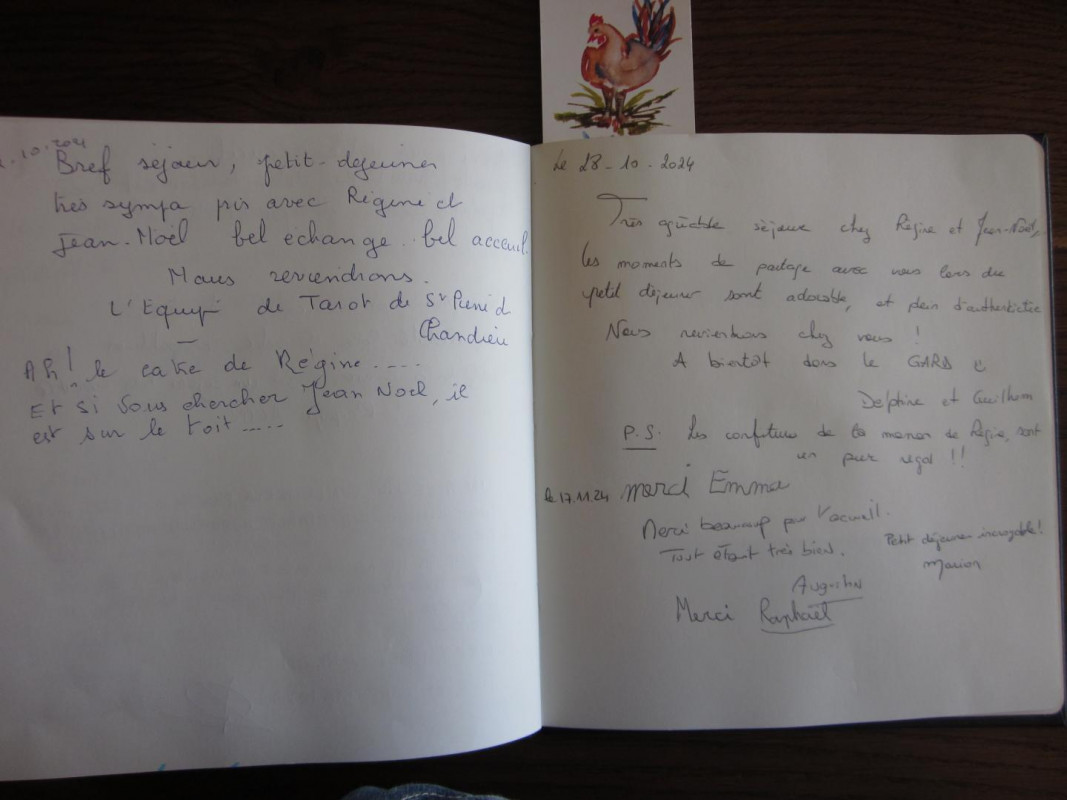 .10.2024
Bref séjour, petit-dejeuner
très sympa pris avec Régine et
Jean-Noël bel echange. bel acceuil.
Nous reviendrons.
L'Equipe de Tarot de St Pierre d
Chandieu
Ah! le cake de Régine....
Et si vous chercher Jean Noel, il
est sur le toit.....
Le 28-10-2024
Très agréable séjour chez Régine et Jean-Noël,
les moments de partage avec vous lors du
petit déjeuner sont adorable, et plein d'authenticitée
Nous reviendrons chez vous !
A bientôt dans le GARD
Delphine et Guilhem
P.S. Les confiture de la maman de Régine, sont
un pur régal !!
le 17.11.24 merci Emma
Merci beaucoup pour l'accueil.
Tout étant très bien.
Petit déjeuner incroyable!
Marion
Augustin
Merci Raphaël